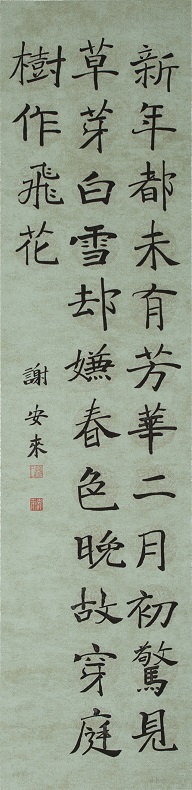 新年都未有芳華二月初驚見
草芽白雪却嫌春色晚故穿庭
樹作飛花
謝安來